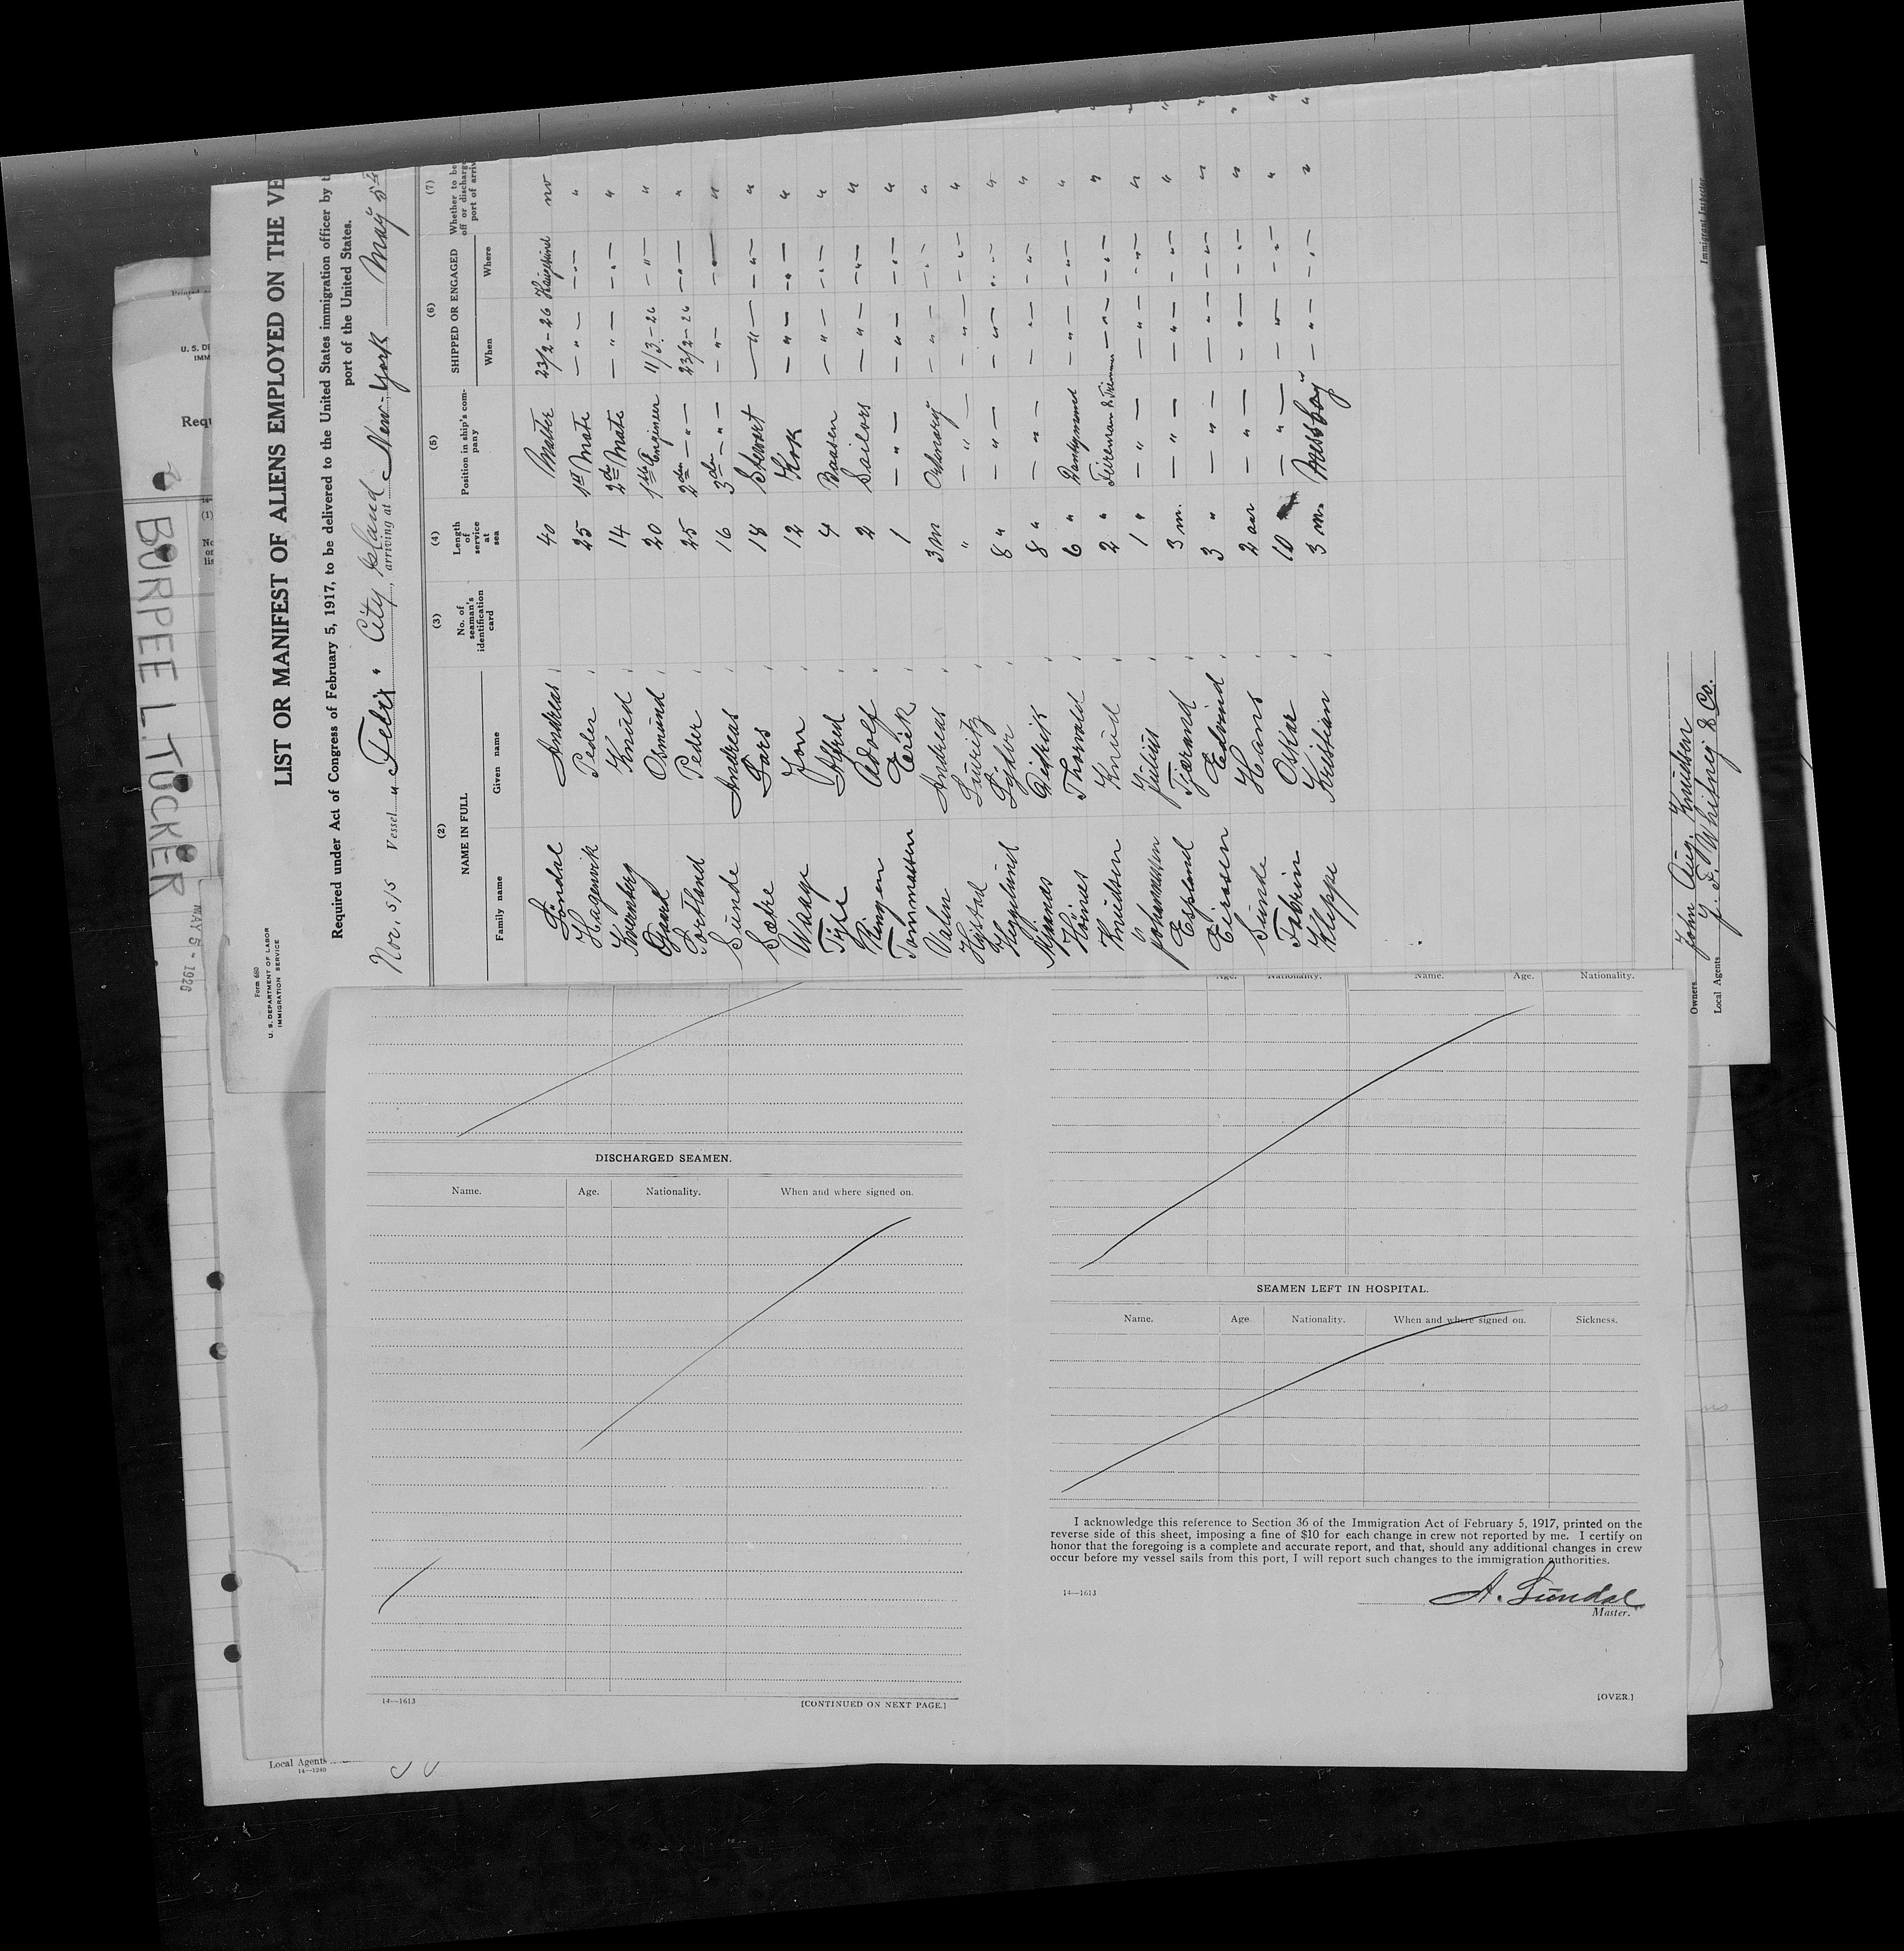 BURPEE L. TUCKER
MAY 5 - 1926
U. S. DE
IMM
Requ
Form 680
U. S. DEPARTMENT OF LABOR
IMMIGRATION SERVICE
LIST OR MANIFEST OF ALIENS EMPLOYED ON THE VE
Required under Act of Congress of February 5, 1917, to be delivered to the United States immigration officer by t
port of the United States.
Nor. S/S Vessel City Island, arriving at New-York May 5th
(2) (3) (4) (5) (6) (7)
NAME IN FULL No. of seaman's identification card Length of service at sea Position in ship's company SHIPPED OR ENGAGED Whether to be off or discharge port of arriv
Family name Given name When Where
Andreas 40 Master 23/2-26 no
Hagenvik Peder 25 1st Mate — " — — " — "
Kvernberg Knud 14 2nd Mate — " — — " — "
Gjard Osmund 20 1ste Engineer 11/3-26 — " — "
Peder 25 2den — " — 23/2-26 — " — "
Sunde Andreas 16 3den — " — — " — — " — "
Sætre Lars 18 Stewart — " — — " — "
Waage Jon 12 Kok — " — — " — "
Alfred 4 Baasen — " — — " — "
Ringen Adolf 2 Sailors — " — — " — "
Tommassen Erik 1 — " — — " — — " — "
Valen Andreas 3 m Ordonary — " — — " — "
Lauritz " — " — — " — — " — "
Heggelund 8 " — " — — " — — " — "
Didrik 8 " — " — — " — — " — "
Höines Thorvald 6 " Donkymand — " — — " — "
Knudsen Knud 2 " — " — — " — "
Johannessen Julius 1 " — " — — " — — " — "
Espland Tjerand 3 m. — " — — " — — " — "
Edvind 3 " — " — — " — — " — "
Sunde Hans 2 aar — " — — " — — " — "
Oskar 10 — " — — " — — " — "
Klippe Kristian 3 m. Messboy — " — — " — "
Owners John Aug. Knudsen
Local Agents J. F. Whitney & Co.
Immigrant Inspector
Age. Nationality. Name. Age. Nationality.
DISCHARGED SEAMEN.
Name. Age. Nationality. When and where signed on.
14—1613 [CONTINUED ON NEXT PAGE.]
SEAMEN LEFT IN HOSPITAL.
Name. Age Nationality. When and where signed on. Sickness.
I acknowledge this reference to Section 36 of the Immigration Act of February 5, 1917, printed on the
reverse side of this sheet, imposing a fine of $10 for each change in crew not reported by me. I certify on
honor that the foregoing is a complete and accurate report, and that, should any additional changes in crew
occur before my vessel sails from this port, I will report such changes to the immigration authorities.
14—1613
A. Lündal
Master.
[OVER.]
Local Agents
14—1240